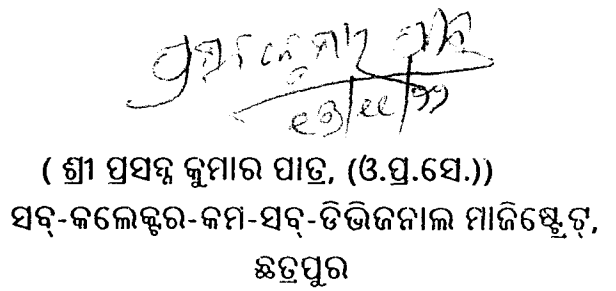 ପ୍ରସନ୍ନ କୁମାର ପାତ୍ର
( ଶ୍ରୀ ପ୍ରସନ୍ନ କୁମାର ପାତ୍ର, (ଓ.ପ୍ର.ସେ.))
ସବ୍-କଲେକ୍ଟର-କମ-ସବ୍-ଡିଭିଜନାଲ ମାଜିଷ୍ଟ୍ରେଟ୍,
ଛତ୍ରପୁର